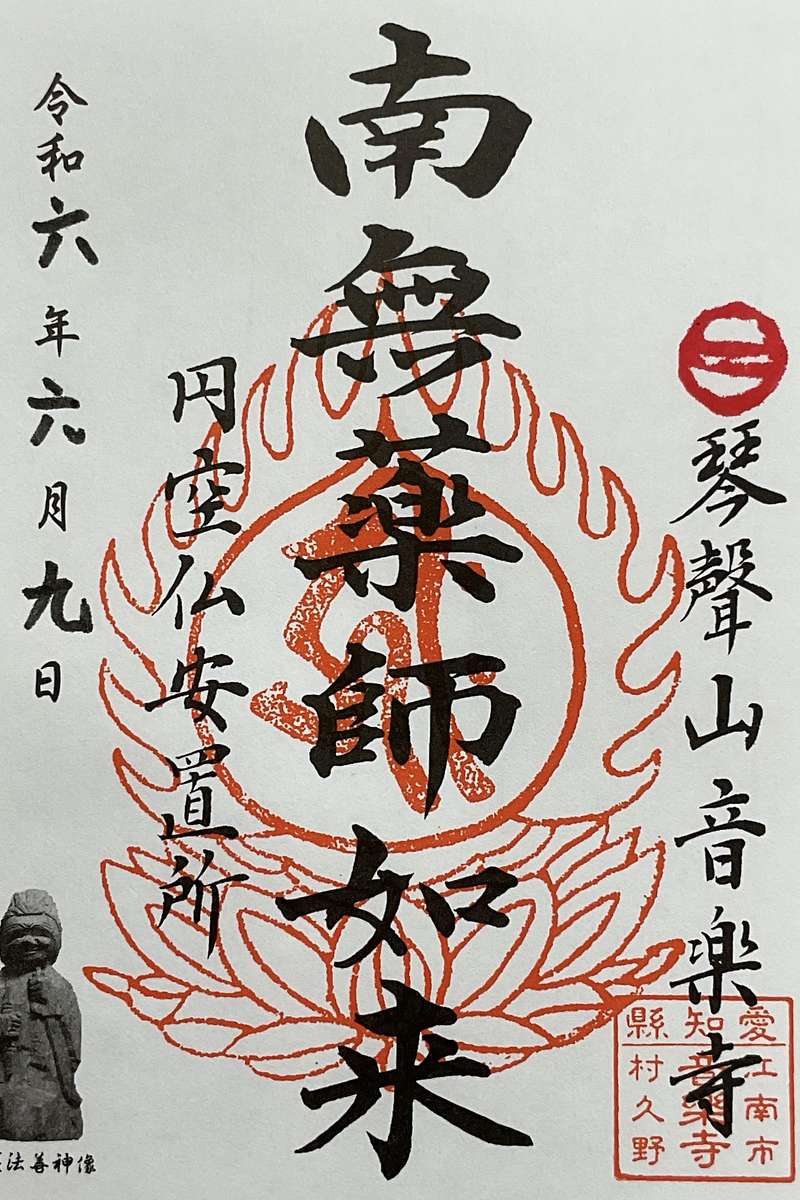 琴聲山音楽寺
愛知縣
江南市
音樂寺
村久野
南無薬師如来
円空仏安置所
令和六年六月九日
法善神像